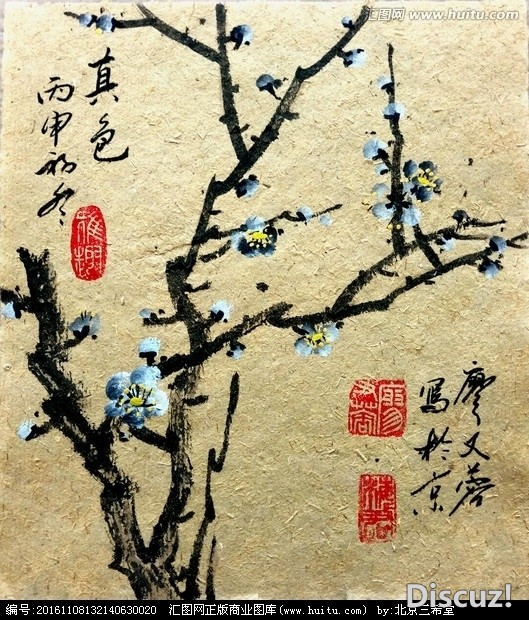 汇图网 www.huitu.com
真色
丙申初冬
廖又蓉
写于京
Discuz!
编号:20161108132140630020 汇图网正版商业图库(www.huitu.com) by:北京三希堂